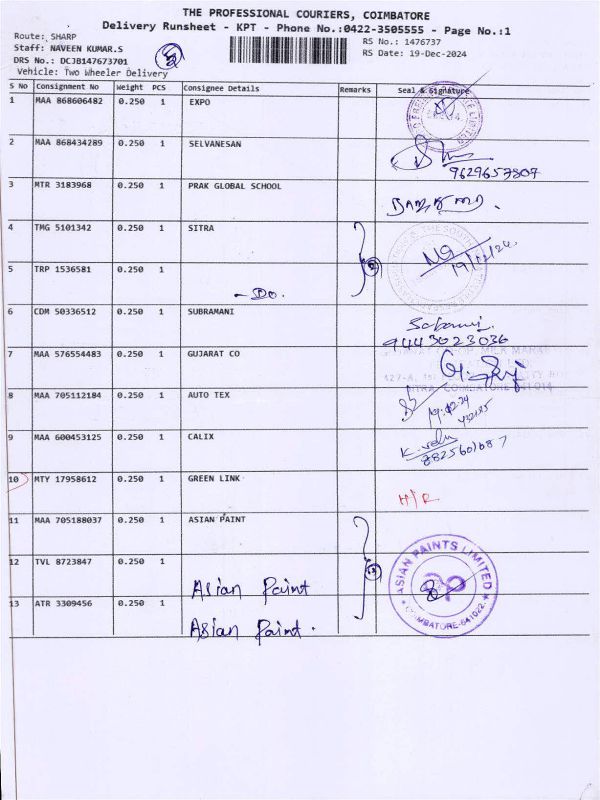 THE PROFESSIONAL COURIERS, COIMBATORE
Delivery Runsheet - KPT - Phone No.:0422-3505555 - Page No.:1
Route: SHARP
Staff: NAVEEN KUMAR.S
DRS No.: DCJB147673701
Vehicle: Two Wheeler Delivery
RS No.: 1476737
RS Date: 19-Dec-2024
S No Consignment No Weight PCS Consignee Details Remarks Seal & Signature
1 MAA 868606482 0.250 1 EXPO
2 MAA 868434289 0.250 1 SELVANESAN
9629657807
3 MTR 3183968 0.250 1 PRAK GLOBAL SCHOOL
4 TMG 5101342 0.250 1 SITRA
19/12/24
5 TRP 1536581 0.250 1
- Do.
6 CDM 50336512 0.250 1 SUBRAMANI
9443023036
7 MAA 576554483 0.250 1 GUJARAT CO
8 MAA 705112184 0.250 1 AUTO TEX
19.12.24
9 MAA 600453125 0.250 1 CALIX
8825601087
10 MTY 17958612 0.250 1 GREEN LINK
H/R
11 MAA 705188037 0.250 1 ASIAN PAINT
12 TVL 8723847 0.250 1
Asian Paint
ASIAN PAINTS LIMITED
COIMBATORE-641022
13 ATR 3309456 0.250 1
Asian Paint.